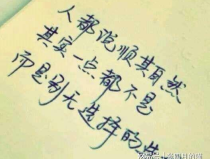 人都说顺其自然
其实一点都不是
而是别无选择的